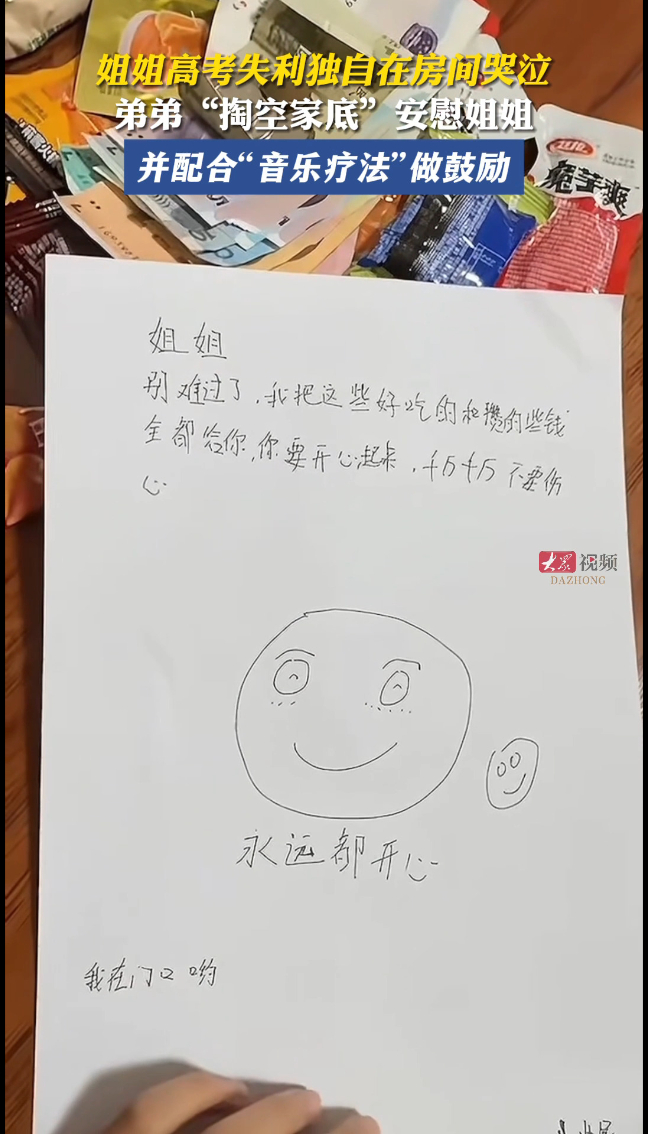 姐姐高考失利独自在房间哭泣
弟弟“掏空家底”安慰姐姐
并配合“音乐疗法”做鼓励
魔芋爽
姐姐
别难过了，我把这些好吃的和攒的些钱
全都给你，你要开心起来，千万千万不要伤
心
大众视频
DAZHONG
永远都开心
我在门口哟